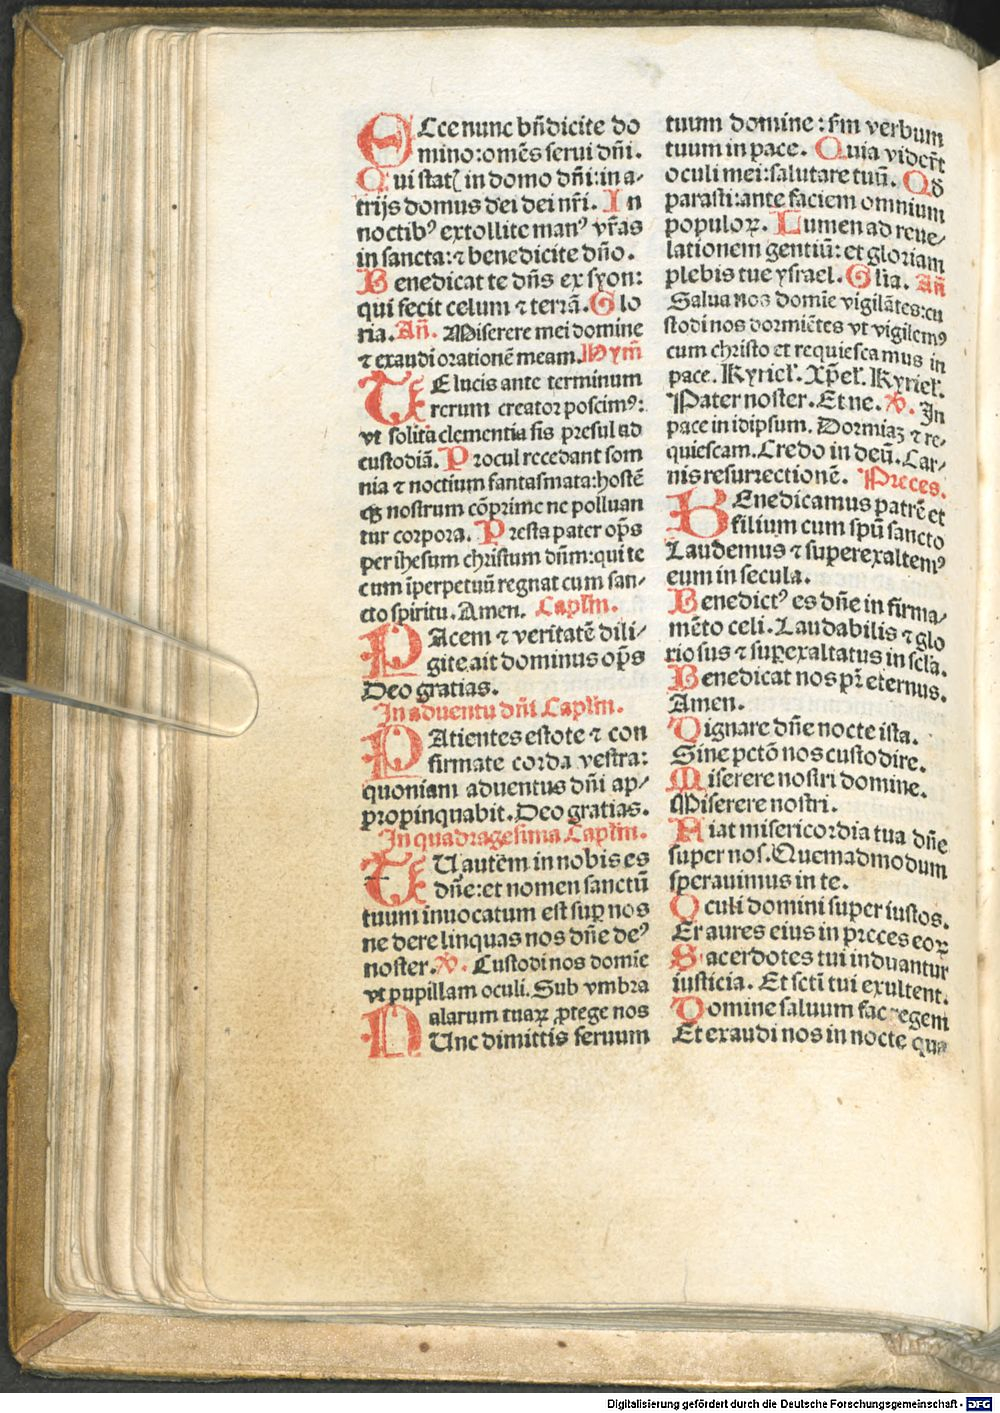 ECce nunc bn̄dicite do
mino: om̄es serui dn̄i.
Qui statꝭ in domo dn̄i: in a-
trijs domus dei dei nr̄i. In
noctibꝰ extollite manꝰ vr̄as
in sancta: ⁊ benedicite dn̄o.
Benedicat te dn̄s ex syon:
qui fecit celum ⁊ terrā. Glo
ria. An̄. Miserere mei domine
⁊ exaudi orationē meam. Hym̄
TE lucis ante terminum
rerum creator poscimꝰ:
vt solita clementia sis presul ad
custodiā. Procul recedant som
nia ⁊ noctium fantasmata: hostē
qꝫ nostrum cōprime ne polluan
tur corpora. Presta pater op̄s
per ihesum christum dn̄m: qui te
cum īperpetuū regnat cum san-
cto spiritu. Amen. Capl'm.
PAcem ⁊ veritatē dili-
gite. ait dominus op̄s
Deo gratias.
In aduentu dn̄i Capl'm.
PAtientes estote ⁊ con
firmate corda vestra:
quoniam aduentus dn̄i ap-
propinquabit. Deo gratias.
In quadragesima Capl'm.
TU autem in nobis es
dn̄e: et nomen sanctū
tuum inuocatum est suꝑ nos
ne derelinquas nos dn̄e deꝰ
noster. ℣. Custodi nos domīe
vt pupillam oculi. Sub vmbra
alarum tuaꝝ ꝓtege nos
NUnc dimittis seruum
tuum domine: s'm verbum
tuum in pace. Quia viderūt
oculi mei: salutare tuū. Qd̄
parasti: ante faciem omnium
populoꝝ. Lumen ad reue-
lationem gentiū: et gloriam
plebis tue ysrael. Gl'ia. An̄
Salua nos domīe vigilātes: cu
stodi nos dormiētes vt vigilemꝰ
cum christo et requiescamus in
pace. Kyriel'. Xp̄el'. Kyriel'.
Pater noster. Et ne. ℣. In
pace in idipsum. Dormiaꝫ ⁊ re-
quiescam. Credo in deū. Car-
nis resurrectionē. Preces.
BEnedicamus patrē et
filium cum spū sancto
Laudemus ⁊ superexaltemꝰ
eum in secula.
Benedictꝰ es dn̄e in firma-
mēto celi. Laudabilis ⁊ glo
riosus ⁊ suꝑexaltatus in scl'a.
Benedicat nos pr̄ eternus.
Amen.
Dignare dn̄e nocte ista.
Sine pctō nos custodire.
Miserere nostri domine.
Miserere nostri.
Fiat misericordia tua dn̄e
super nos. Quemadmodum
sperauimus in te.
Oculi domini super iustos.
Et aures eius in preces eoꝝ
Sacerdotes tui induantur
iusticia. Et sctī tui exultent.
Domine saluum fac regem
Et exaudi nos in nocte qua
Digitalisierung gefördert durch die Deutsche Forschungsgemeinschaft - DFG